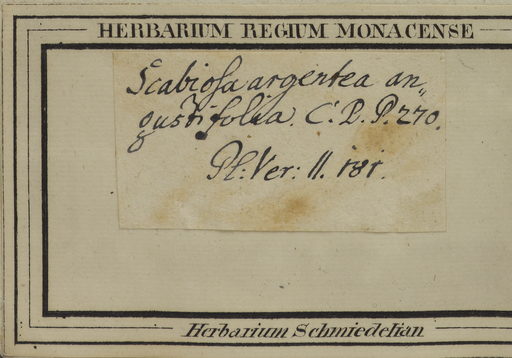 HERBARIUM REGIUM MONACENSE
Scabiosa argentea an„
gustifolia. C. B. P. 270.
Pl: Ver: II. 181.
Herbarium Schmiedelian